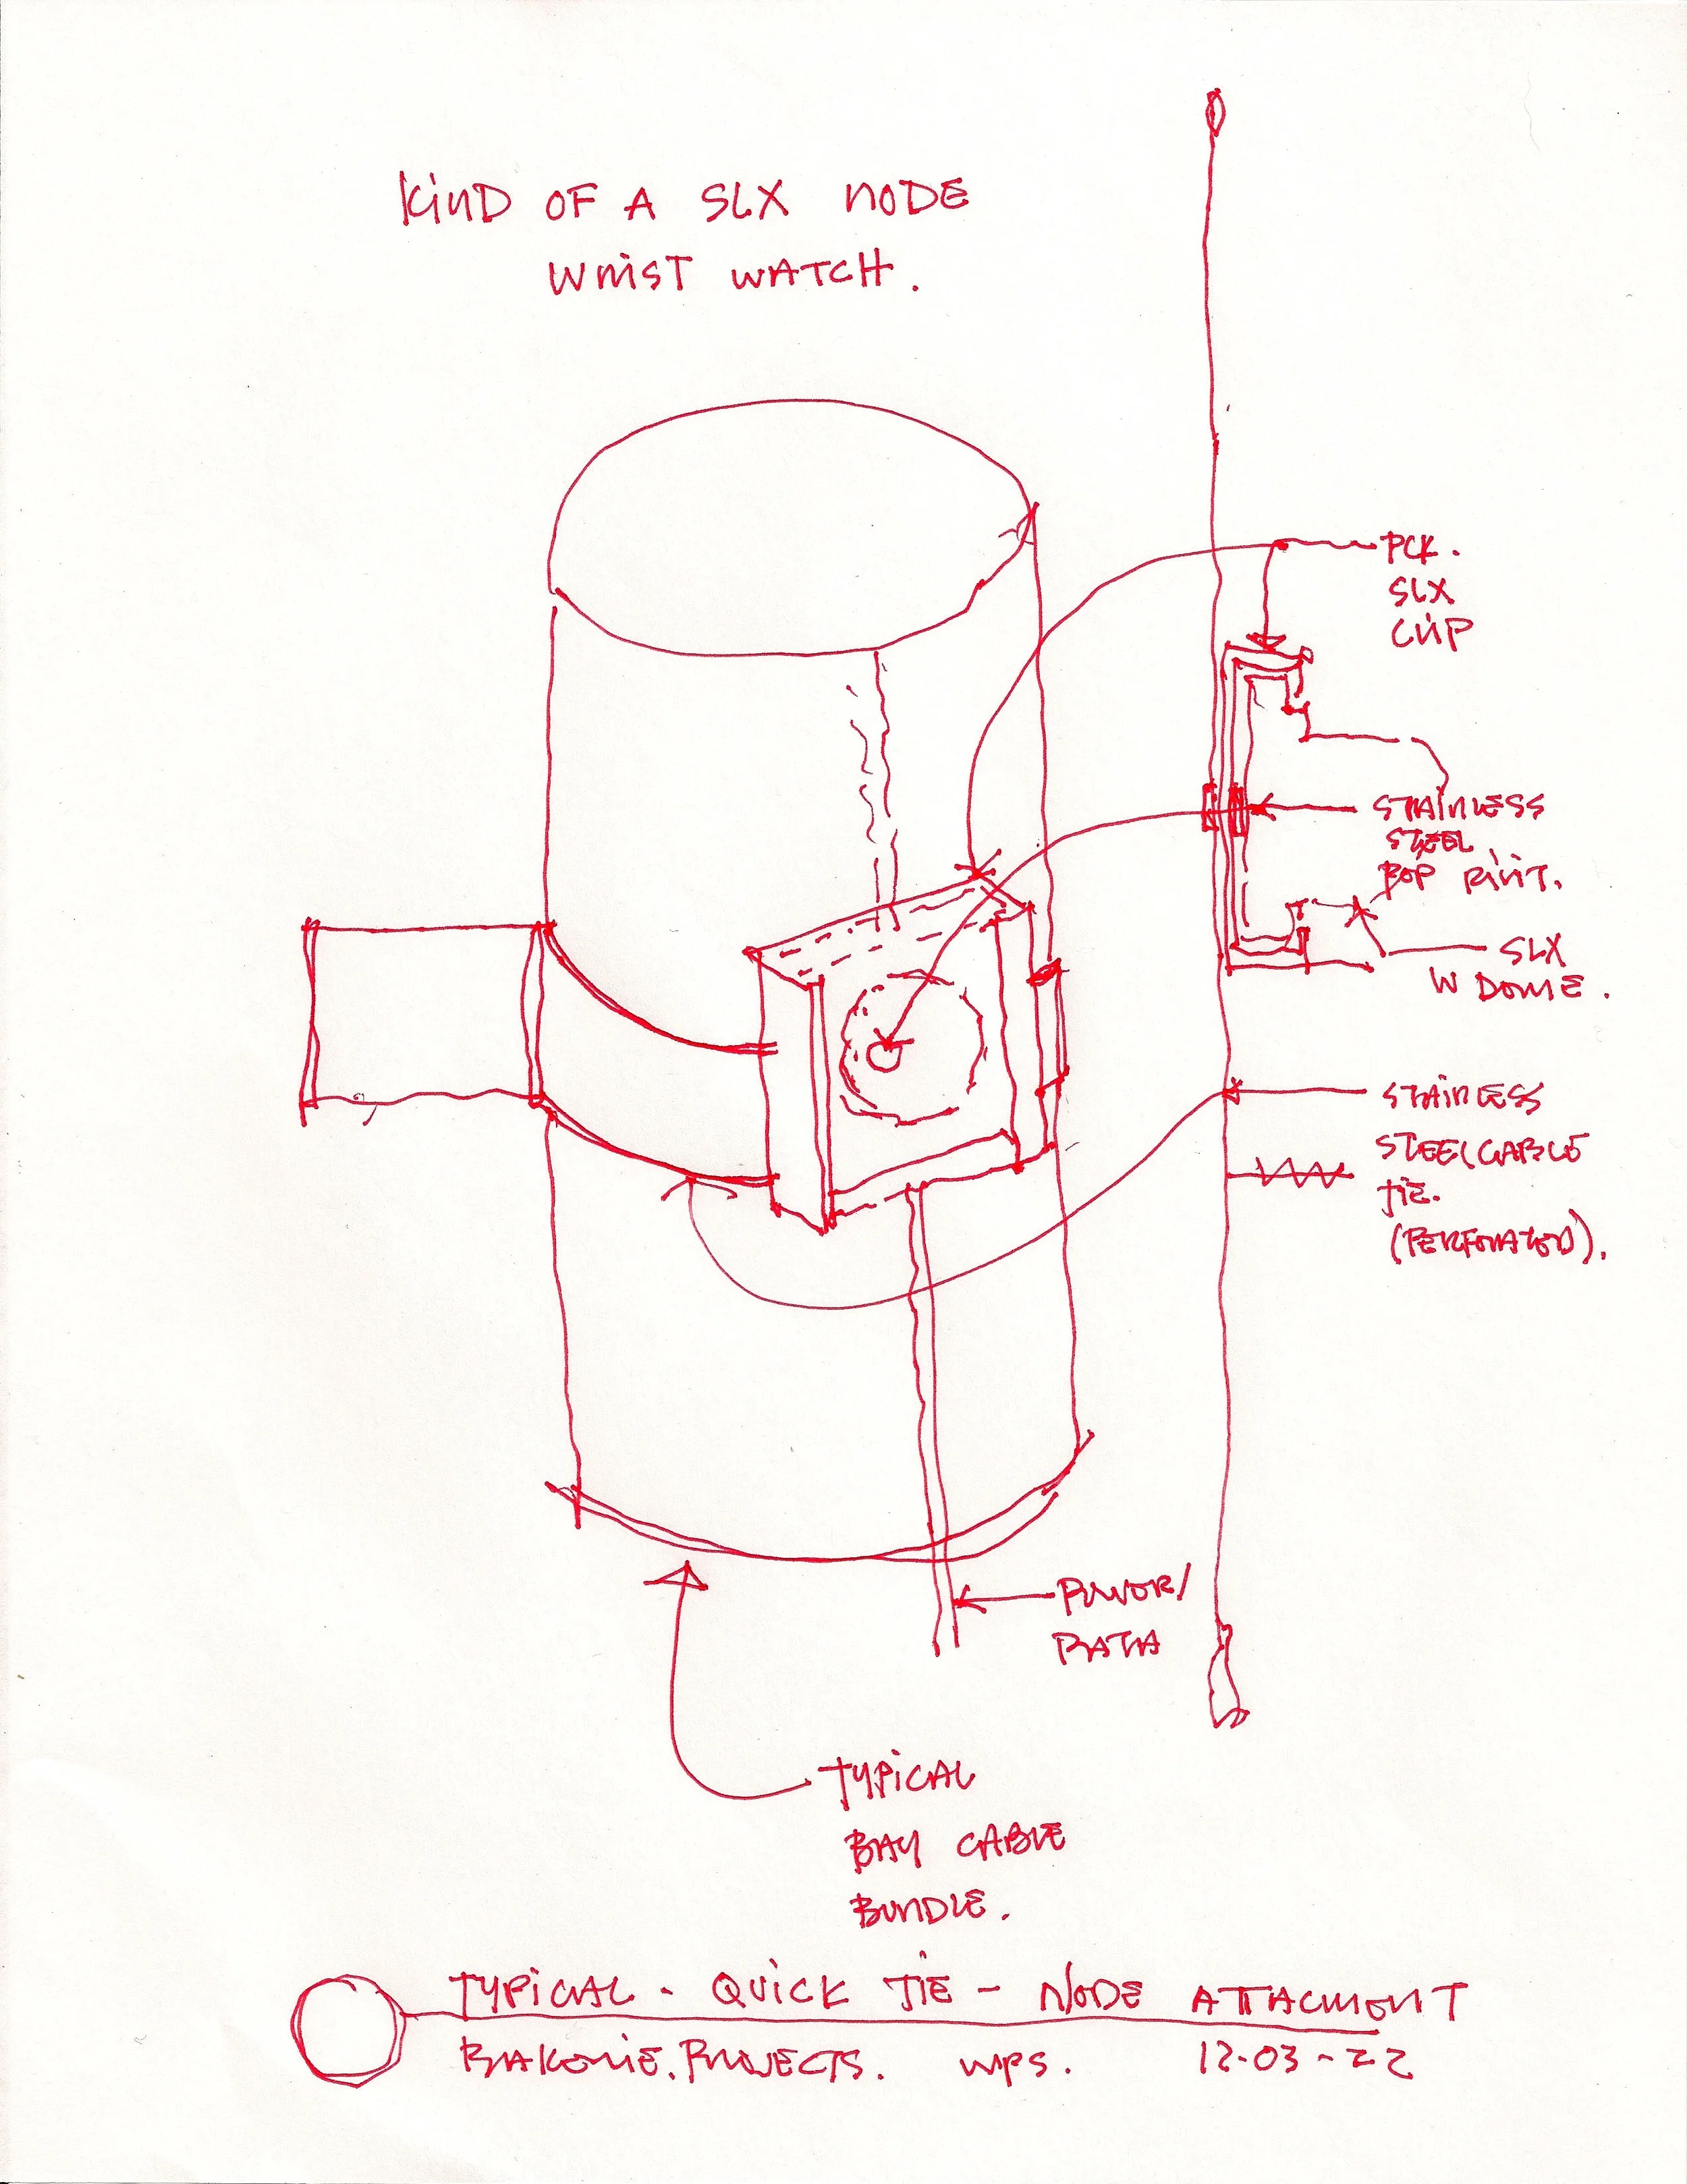 KIND OF A SLX NODE
WRIST WATCH.
PCK.
SLX
CLIP
STAINLESS
STEEL
POP RIVIT.
SLX
W DOME.
STAINLESS
STEEL CABLE
TIE.
(PERFORATED).
POWER/
DATA
TYPICAL
BAY CABLE
BUNDLE.
TYPICAL - QUICK TIE - NODE ATTACMENT
PROJECTS. WPS. 12-03-22